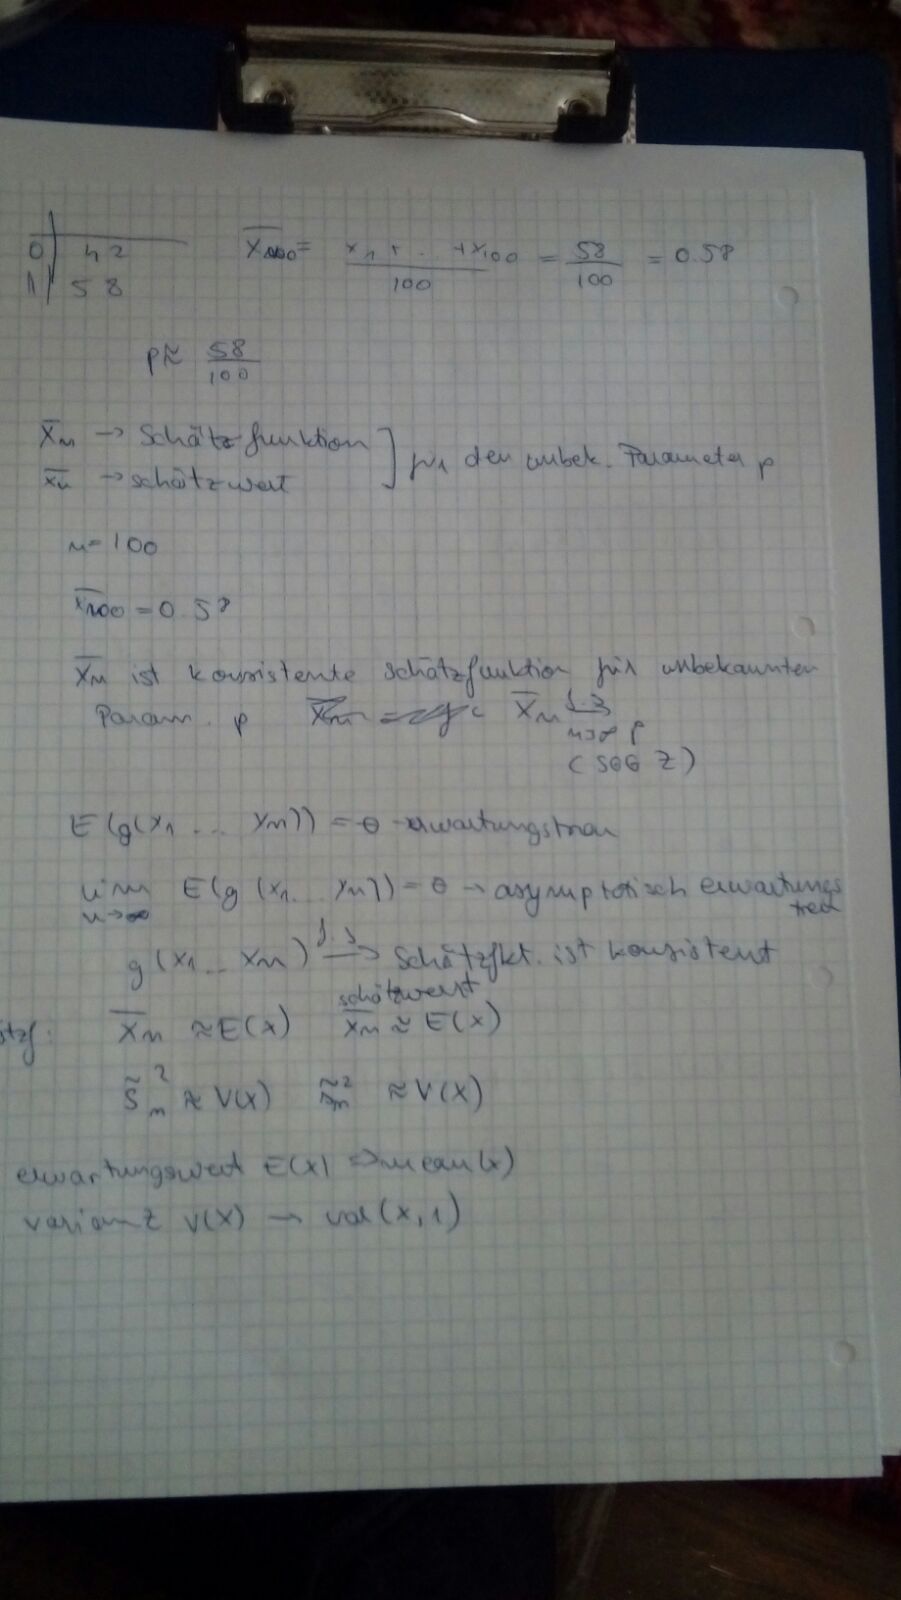 0 | 42
1 | 58
X̄₁₀₀ = (x₁ + .. + x₁₀₀)/100 = 58/100 = 0.58
p ≈ 58/100
X̄ₙ → Schätzfunktion ] für den unbek. Parameter p
x̄ₙ → schätzwert
n = 100
x̄₁₀₀ = 0.58
X̄ₙ ist konsistente Schätzfunktion für unbekannten
Param. p X̄ₙ f.s → n→∞ p
(SGGZ)
E(g(x₁ ... xₙ)) = θ - erwartungstreu
lim n→∞ E(g(x₁ ... xₙ)) = θ → asymptotisch erwartungstreu
g(x₁ ... xₙ) f.s → Schätzfkt. ist konsistent
schätzwert
X̄ₙ ≈ E(x) x̄ₙ ≈ E(x)
S̃²ₙ ≈ V(X) s̃²ₙ ≈ V(X)
erwartungswert E(X) → mean(x)
varianz V(X) → var(x,1)